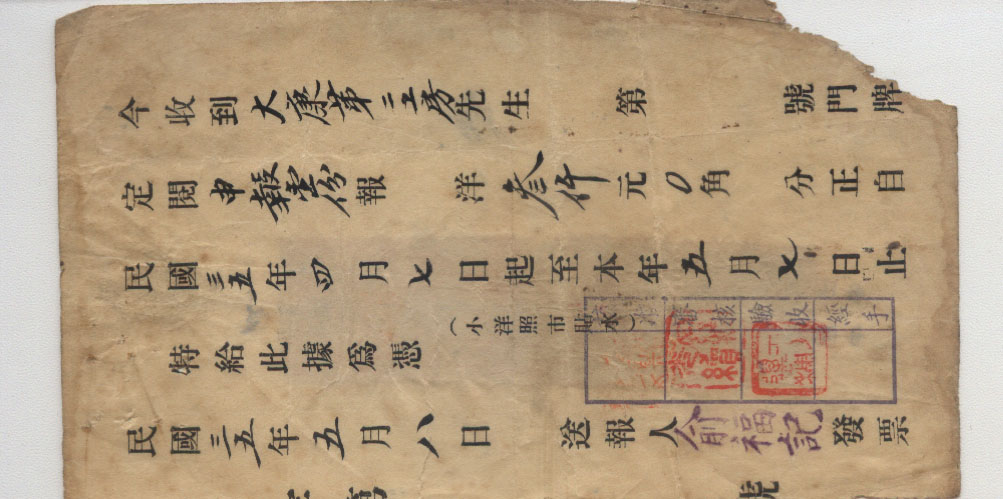 今收到大康第二五房先生 第 號門牌
定閱申報壹份報 洋叁仟元0角 分正自
民國三五年四月七日起至本年五月七日止
(小洋照市貼水)
特給此據爲憑
審核 驗收 經手
民國三五年五月八日 送報人俞福記發票
號